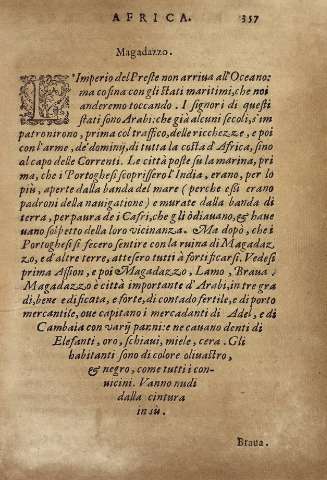 AFRICA. 357
Magadazzo.
L'Imperio del Preste non arriua all'Oceano:
ma cofina con gli ſtati maritimi, che noi
anderemo toccando. I signori di queſti
ſtati ſono Arabi: che già alcuni ſecoli, s'im
patronirono, prima col traffico, delle ricchezze, e poi
con l'arme, de' dominij, di tutta la coſta d'Africa, ſino
al capo delle Correnti. Le città poſte ſu la marina, pri
ma, che i Portogheſi ſcopriſſero l'India, erano, per lo
più, aperte dalla banda del mare (perche eſsi erano
padroni della nauigatione) e murate dalla banda di
terra, per paura de i Cafri, che gli odiauano, & haue
uano ſoſpetto della loro vicinanza. Ma dopò, che i
Portogheſi ſi fecero ſentire con la ruina di Magadaz
zo, e d'altre terre, atteſero tutti à fortificarſi. Vedeſi
prima Aſſion, e poi Magadazzo, Lamo, Braua.
Magadazzo è città importante d'Arabi, in tre gra
di, bene edificata, e forte, di contado fertile, e di porto
mercantile, oue capitano i mercadanti di Adel, e di
Cambaia con varij panni: e ne cauano denti di
Elefanti, oro, ſchiaui, miele, cera. Gli
habitanti ſono di colore oliuaſtro,
& negro, come tutti i con-
uicini. Vanno nudi
dalla cintura
in sù.
Braua.